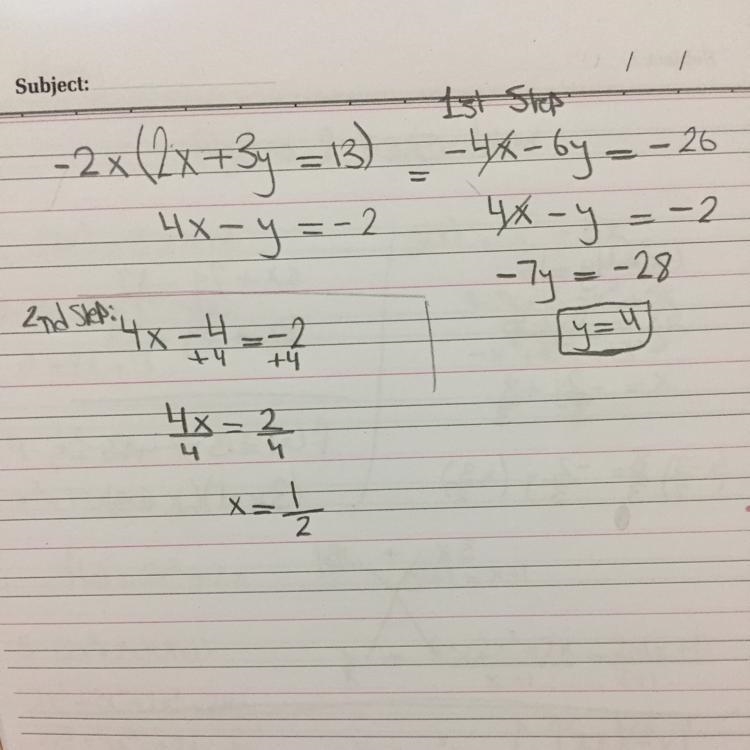 Subject:
/ /
1st Step
-2x(2x+3y=13) = -4x-6y=-26
4x-y=-2 4x-y=-2
-7y=-28
y=4
2nd Step: 4x-4=-2
+4 +4
4x/4=2/4
x=1/2